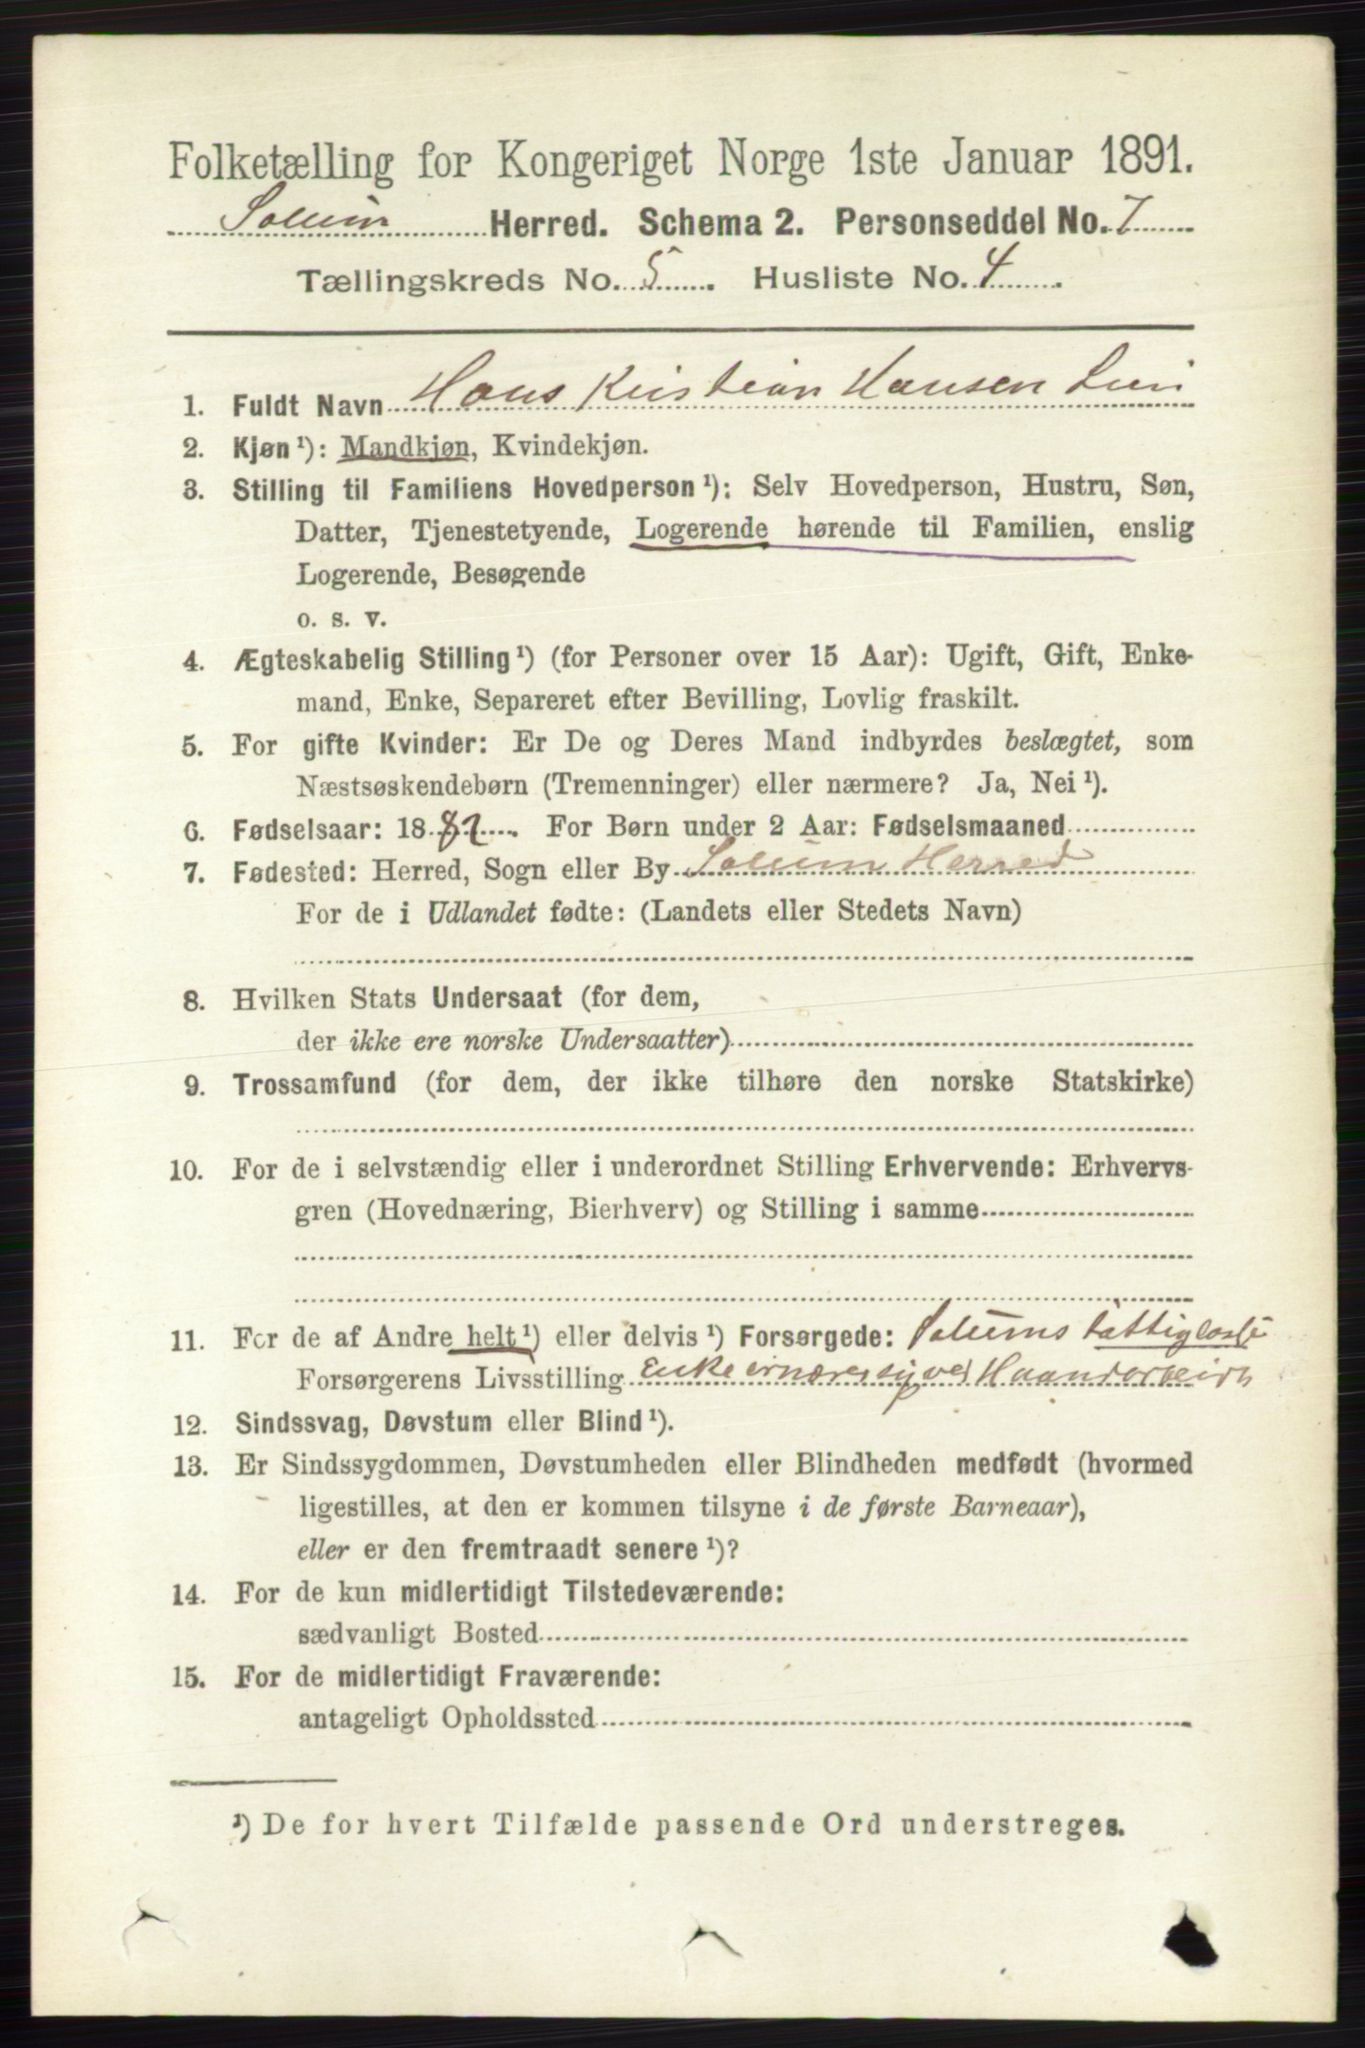 Folketælling for Kongeriget Norge 1ste Januar 1891.
Solum Herred. Schema 2. Personseddel No. 7
Tællingskreds No. 5. Husliste No. 4.
1. Fuldt Navn Hans Kristian Hansen
2. Kjøn ¹): Mandkjøn, Kvindekjøn.
3. Stilling til Familiens Hovedperson ¹): Selv Hovedperson, Hustru, Søn,
Datter, Tjenestetyende, Logerende hørende til Familien, enslig
Logerende, Besøgende
o. s. v.
4. Ægteskabelig Stilling ¹) (for Personer over 15 Aar): Ugift, Gift, Enke-
mand, Enke, Separeret efter Bevilling, Lovlig fraskilt.
5. For gifte Kvinder: Er De og Deres Mand indbyrdes beslægtet, som
Næstsøskendebørn (Tremenninger) eller nærmere? Ja, Nei ¹).
6. Fødselsaar: 1882. For Børn under 2 Aar: Fødselsmaaned
7. Fødested: Herred, Sogn eller By Solum Herred
For de i Udlandet fødte: (Landets eller Stedets Navn)
8. Hvilken Stats Undersaat (for dem,
der ikke ere norske Undersaatter)
9. Trossamfund (for dem, der ikke tilhøre den norske Statskirke)
10. For de i selvstændig eller i underordnet Stilling Erhvervende: Erhvervs-
gren (Hovednæring, Bierhverv) og Stilling i samme
11. For de af Andre helt ¹) eller delvis ¹) Forsørgede: Solums
Forsørgerens Livsstilling Enke ernærer sig ved
12. Sindssvag, Døvstum eller Blind ¹).
13. Er Sindssygdommen, Døvstumheden eller Blindheden medfødt (hvormed
ligestilles, at den er kommen tilsyne i de første Barneaar),
eller er den fremtraadt senere ¹)?
14. For de kun midlertidigt Tilstedeværende:
sædvanligt Bosted
15. For de midlertidigt Fraværende:
antageligt Opholdssted
¹) De for hvert Tilfælde passende Ord understreges.